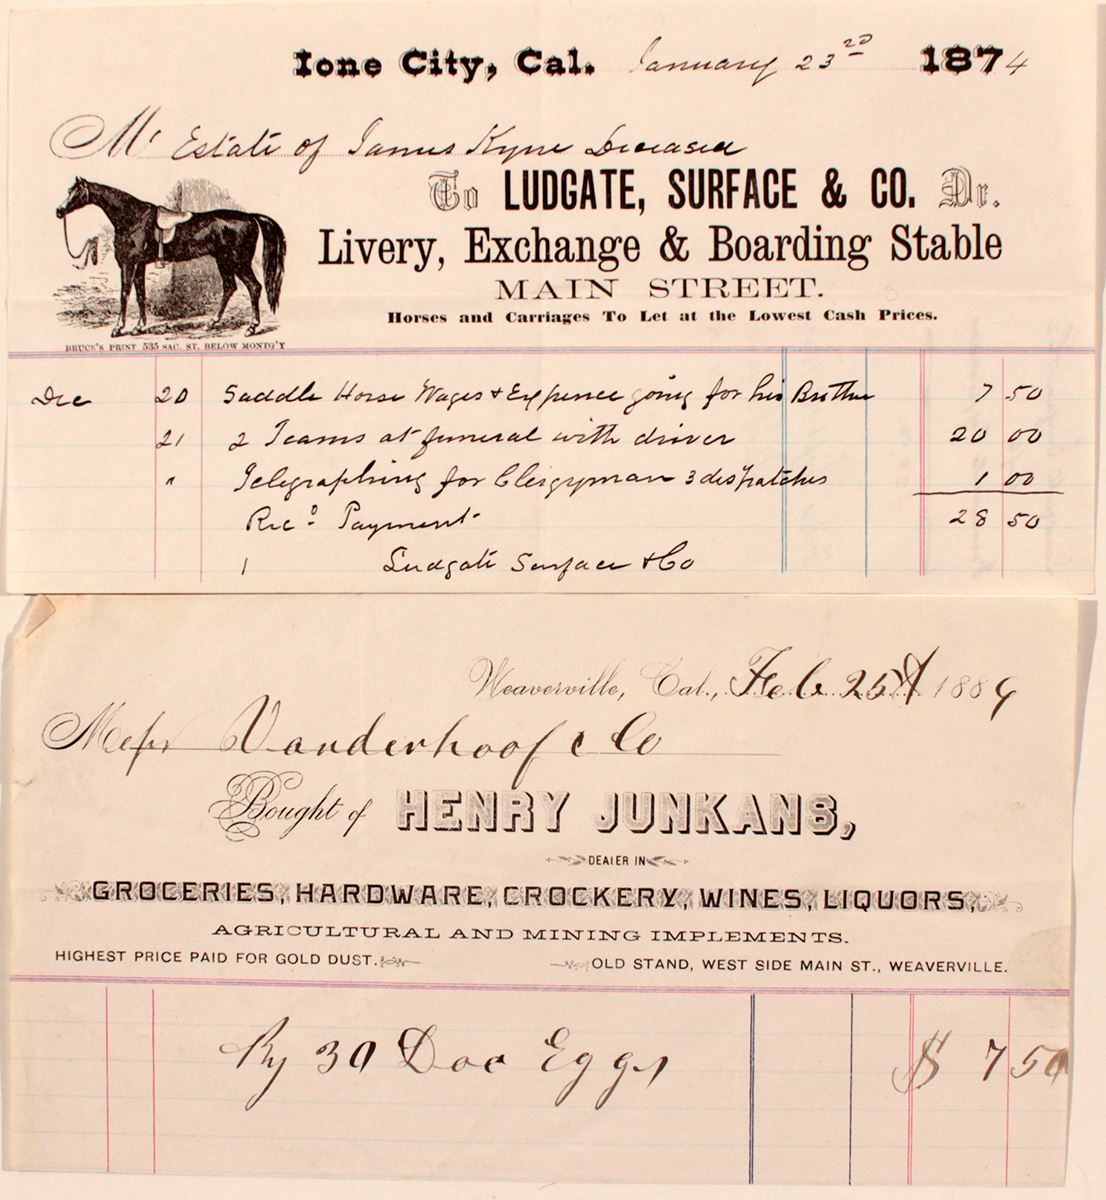 Ione City, Cal. January 23rd 1874
Mr Estate of James Kyne Deceased
To LUDGATE, SURFACE & CO. Dr.
Livery, Exchange & Boarding Stable
MAIN STREET.
Horses and Carriages To Let at the Lowest Cash Prices.
BRUCE'S PRINT 535 SAC. ST. BELOW MONTG'Y
Dec 20 Saddle Horse Wages & Expence going for his Brother 7 50
21 2 Teams at funeral with driver 20 00
" Telegraphing for Clergyman 3 dispatches 1 00
Recd Payment 28 50
Ludgate Surface & Co
Weaverville, Cal., Feb 25th 1889
Messrs Vanderhoof & Co
Bought of HENRY JUNKANS,
DEALER IN
GROCERIES, HARDWARE, CROCKERY, WINES, LIQUORS,
AGRICULTURAL AND MINING IMPLEMENTS.
HIGHEST PRICE PAID FOR GOLD DUST. OLD STAND, WEST SIDE MAIN ST., WEAVERVILLE.
By 30 Doz Eggs $ 7 50